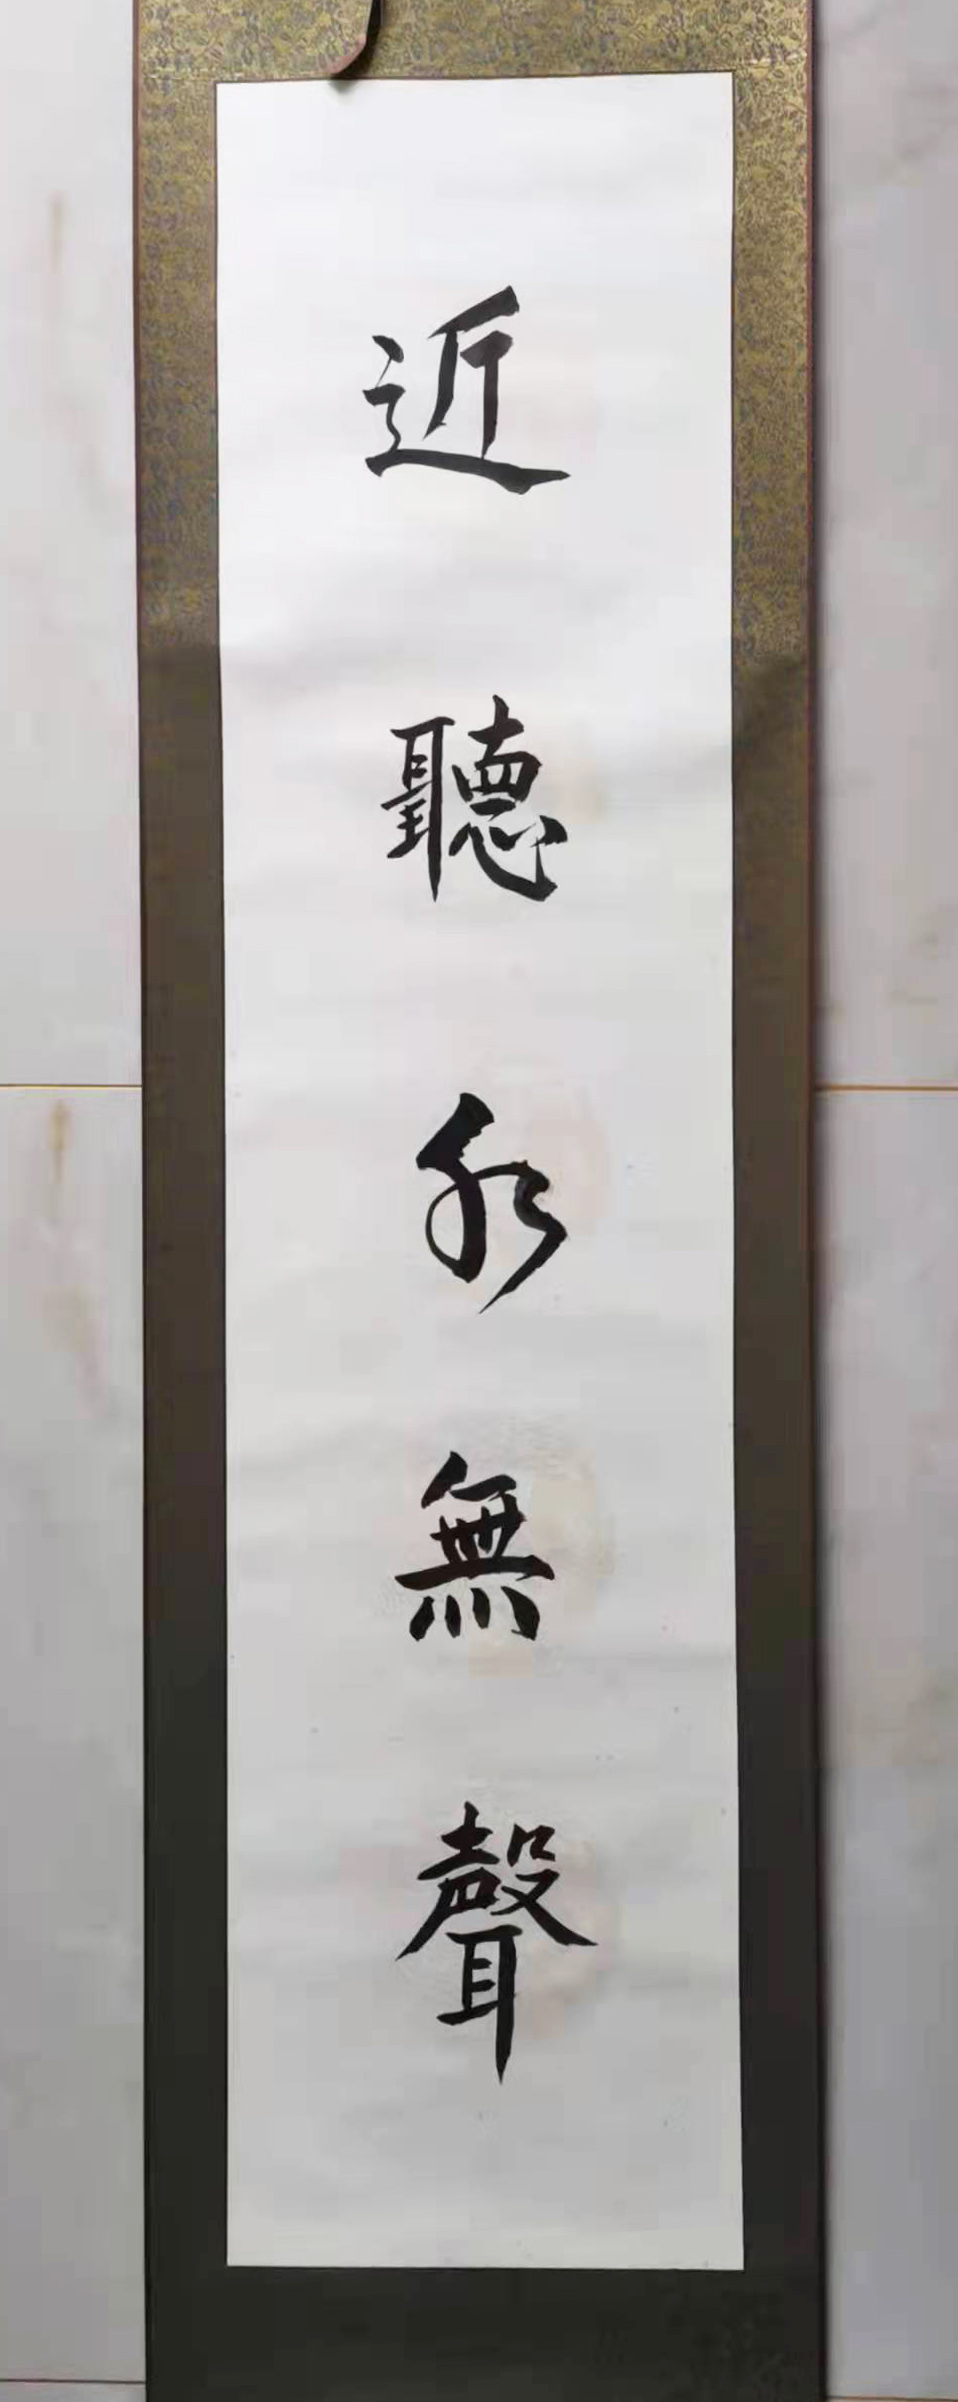 近聽水無聲